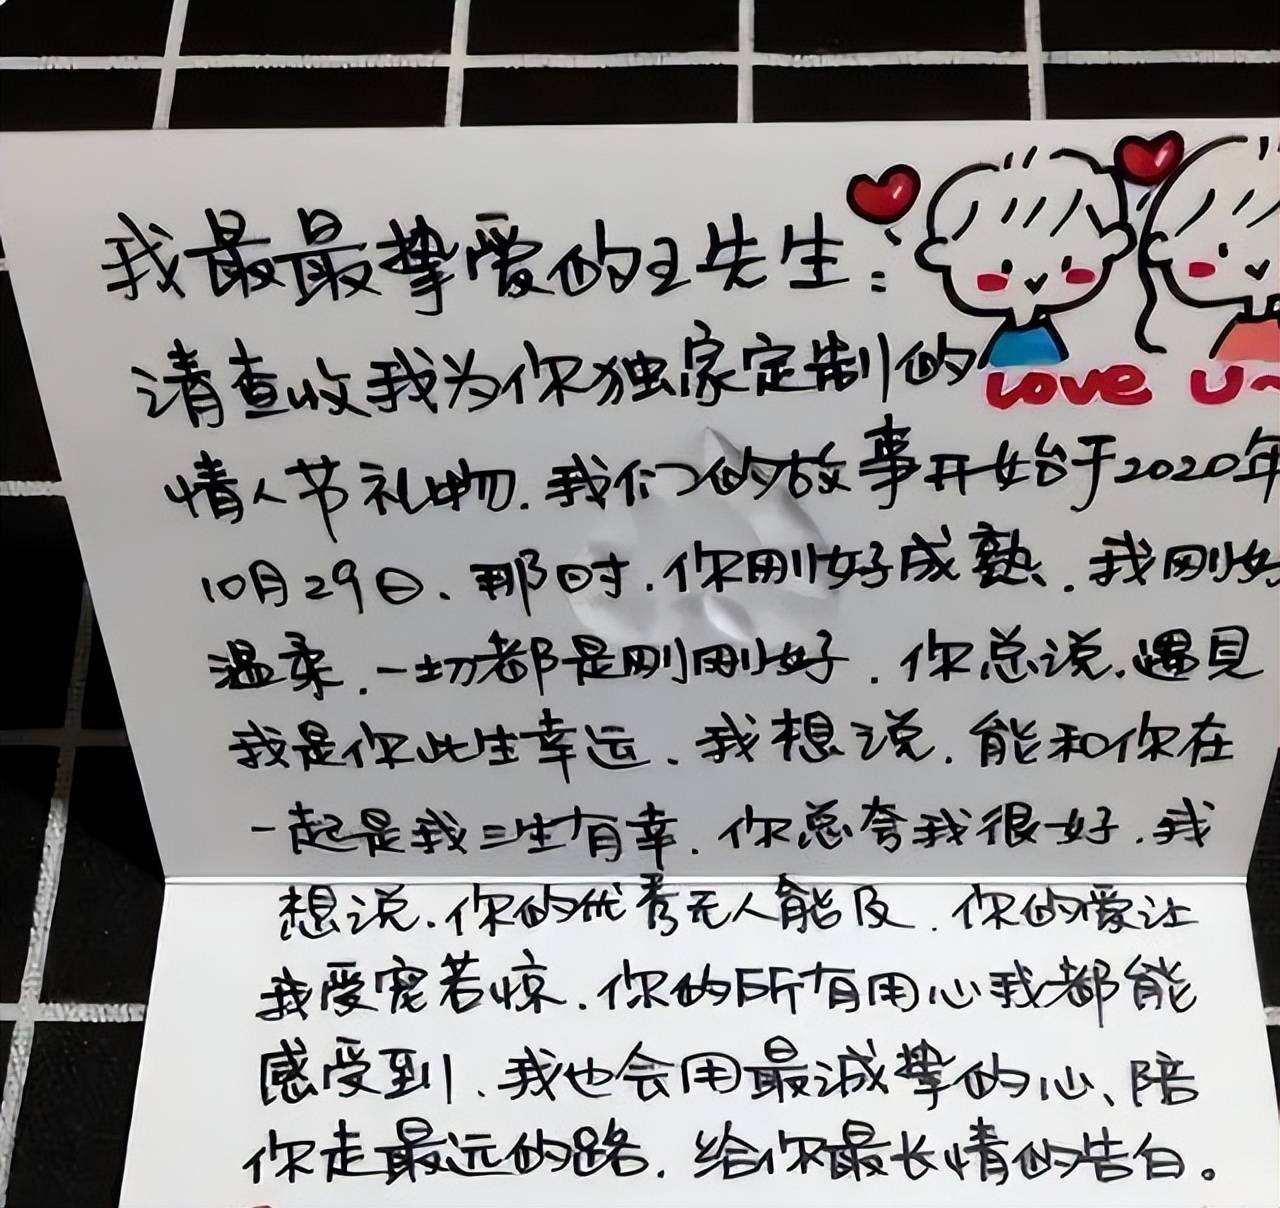 我最最挚爱的王先生：
请查收我为你独家定制的
Love U~
情人节礼物.我们的故事开始于2020年
10月29日、那时.你刚好成熟.我刚好
温柔.一切都是刚刚好.你总说.遇见
我是你此生幸运.我想说.能和你在
一起是我三生有幸.你总夸我很好.我
想说.你的优秀无人能及.你的爱让
我受宠若惊.你的所有用心我都能
感受到、我也会用最诚挚的心、陪
你走最远的路.给你最长情的告白。